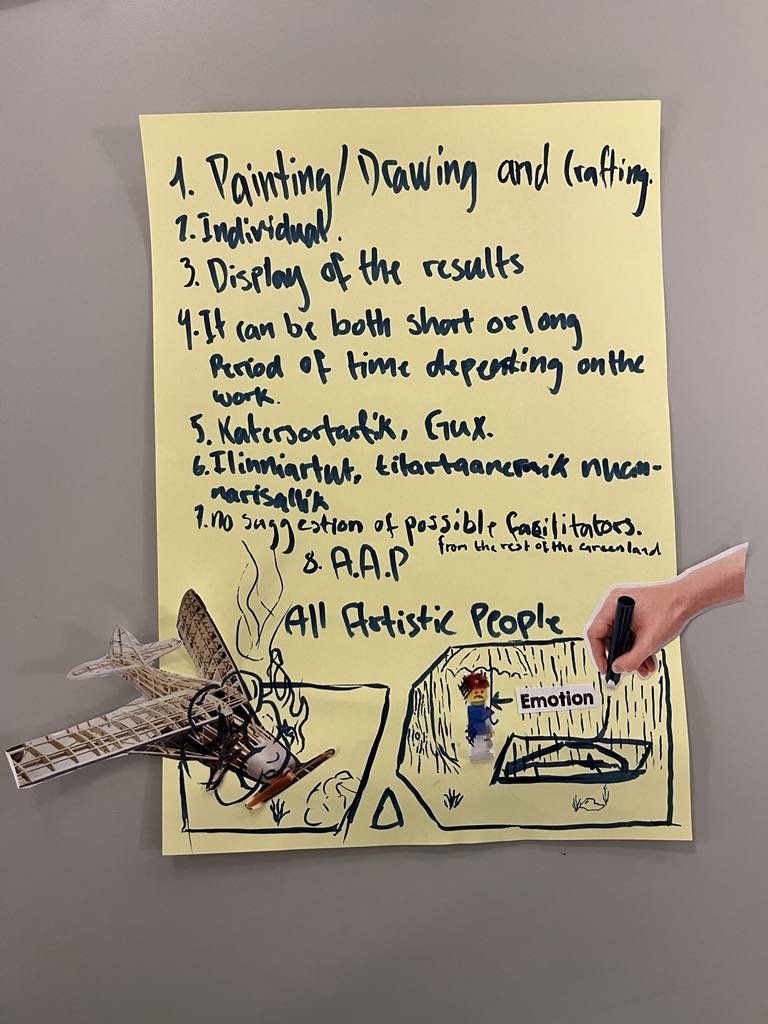 1. Painting/Drawing and Crafting.
2. Individual.
3. Display of the results
4. It can be both short or long
Period of time depending on the
work.
5. Katersortarfik, GUX.
6. Ilinniartut,
7. no suggestion of possible facilitators.
from the rest of the Greenland
8. A.A.P
All Artistic People
Emotion